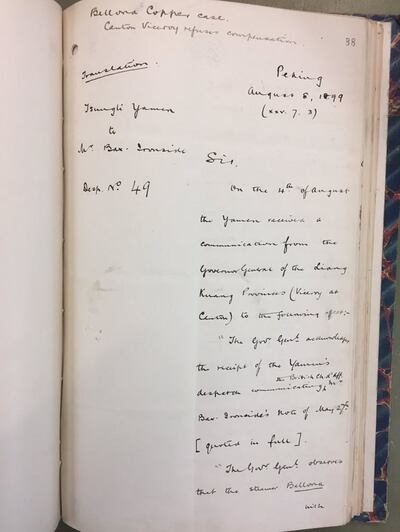 Bellona Copper case.
Canton Viceroy refuses compensation.
38
Translation.
Peking
August 8, 1899
(xxv. 7. 3)
Tsungli Yamen
to
Mr. Bax-Ironside
Sir,
Desp. No. 49
On the 4th of August
the Yamen received a
communication from the
Governor General of the Liang
Kuang Provinces (Viceroy at
Canton) to the following effect:-
"The Govr. Genl. acknowledges
the receipt of the Yamen's
the British Chd. d'Aff.
despatch communicating Mr.
Bax-Ironside's Note of May 27th
[quoted in full].
"The Govr. Genl. observes
that the steamer Bellona
with